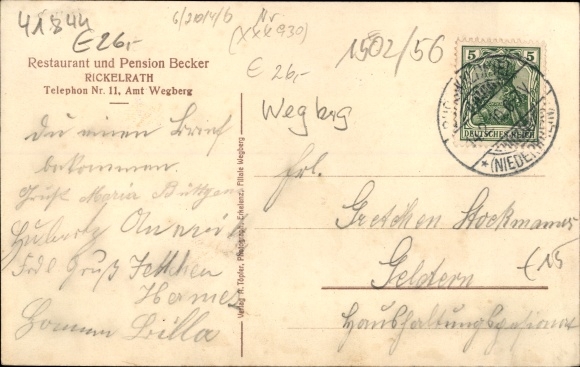 41844
E 26,-
6/210/4/b
Nr
(XXX930)
1502/56
Restaurant und Pension Becker
RICKELRATH
Telephon Nr. 11, Amt Wegberg
E 26,-
Wegberg
5 5
DEUTSCHES REICH
(NIEDER
Du einen Brief
bekommen.
Gruß Maria Büttgen
Hubert
Frdl Gruß Jettchen
Hermes
Billa
Verlag R. Töpler, Photograph, Erkelenz, Filiale Wegberg
Frl.
Gretchen Stockmanns
Geldern
€15
Haushaltungspensionat